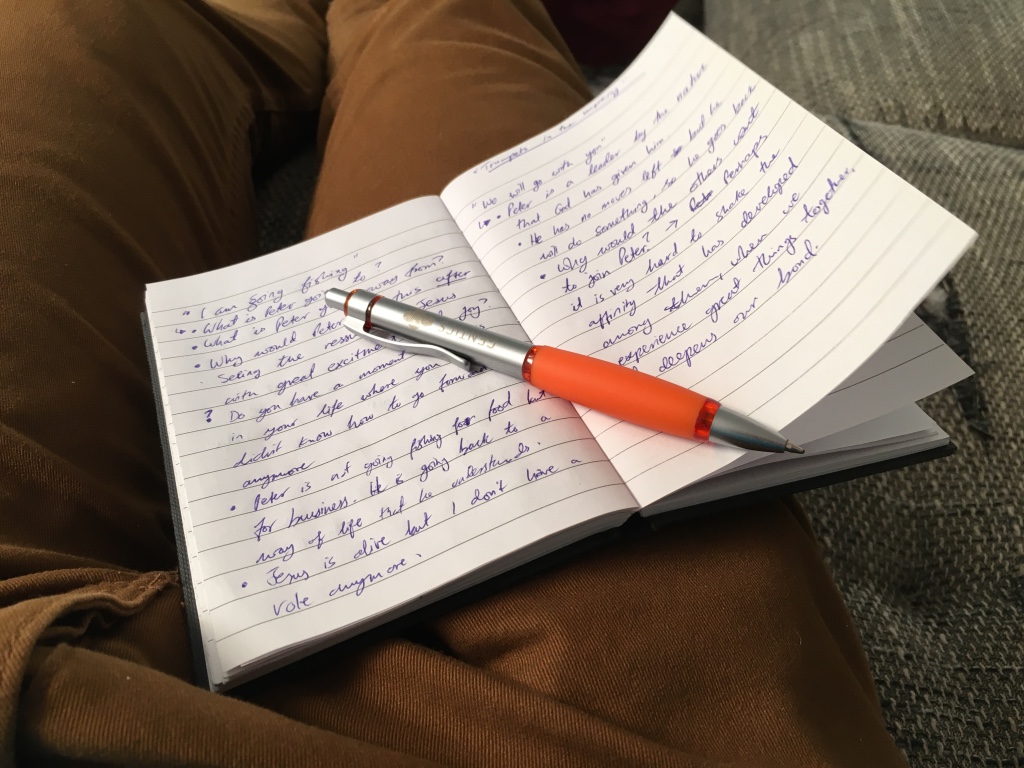 "I am going fishing"
• What is Peter going to?
• What is Peter away from?
• Why would Peter this after
Seeing the Jesus
with great excitment joy?
? Do you have a moment
in your life where you
didn't know how to go forward
anymore
• Peter is not going fishing for food but
for buusiness. He is going back to a
way of life that he understands.
• Jesus is alive but I don't have a
role anymore.
"We will go with you"
• Peter is a leader by the nature
that God has given him.
• He has no moves left and he
will do something so he goes back
• Why would the others want
to join Peter? → Perhaps
it is very hard to shake the
affinity that has developed
among others, when we
experience great things together,
deepens our bond.
CENTICS